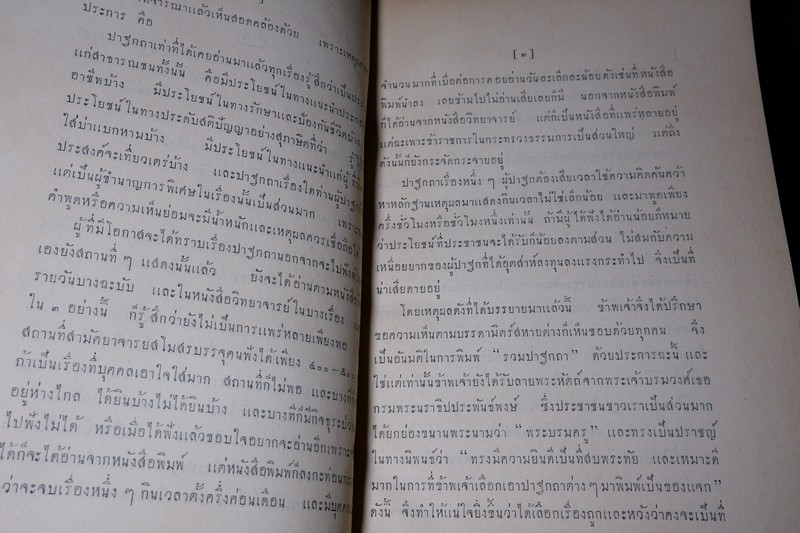 จารณาแล้วเห็นสอดคล้องด้วย เพราะเหตุผล
ประการ คือ
ปาฐกถาเท่าที่ได้เคยอ่านมาแล้วทุกเรื่องรู้สึกว่าเป็นประ
แก่สาธารณชนทั้งนั้น คือมีประโยชน์ในทางแนะนำประกอบ
อาชีพบ้าง มีประโยชน์ในทางรักษาและป้องกันชีวิตบ้าง
ประโยชน์ในทางประดับสติปัญญาอย่างสุภาษิตที่ว่า รู้ไว้
ใส่บ่าแบกหามบ้าง มีประโยชน์ในทางแนะนำแก่ผู้ที่มี
ประสงค์จะเที่ยวเตร่บ้าง และปาฐกถาเรื่องใดท่านผู้ปาฐก
แต่เป็นผู้ชำนาญการพิเศษในเรื่องนั้นเป็นส่วนมาก เพราะ
คำพูดหรือความเห็นย่อมจะมีน้ำหนักและเหตุผลควรเชื่อถือได้
ผู้ที่มีโอกาสจะได้ทราบเรื่องปาฐกถานอกจากจะไปฟังด้วย
เองยังสถานที่ ๆ แสดงนั้นแล้ว ยังจะได้อ่านตามหนังสือ
รายวันบางฉะบับ และในหนังสือวิทยาจารย์ในบางเรื่อง
ใน ๓ อย่างนี้ ก็รู้สึกว่ายังไม่เป็นการแพร่หลายเพียงพอ
สถานที่สามัคยาจารยสโมสรบรรจุคนฟังได้เพียง ๔๐๐–๕๐๐
ถ้าเป็นเรื่องที่บุคคลเอาใจใส่มาก สถานที่ก็ไม่พอ และบางที่ก็
อยู่ห่างไกล ได้ยินบ้างไม่ได้ยินบ้าง และบางทีก็มีกิจธุระป่วย
ไปฟังไม่ได้ หรือเมื่อได้ฟังแล้วชอบใจอยากจะอ่านอีกเพราะ
ได้ก็จะได้อ่านจากหนังสือพิมพ์ แต่หนังสือพิมพ์ก็ลงกะท่อนกะ
ว่าจะจบเรื่องหนึ่ง ๆ กินเวลาตั้งครึ่งค่อนเดือน และมีบุคคล
[ ๓ ]
จำนวนมากที่เบื่อต่อการคอยอ่านวันละเล็กละน้อยดั่งเช่นที่หนังสือ
พิมพ์นำลง เลยข้ามไปไม่อ่านเสียเลยก็มี นอกจากหนังสือพิมพ์
ก็ได้อ่านจากหนังสือวิทยาจารย์ แต่ก็เป็นหนังสือที่แพร่หลายอยู่
แต่ฉะเพาะข้าราชการในกระทรวงธรรมการเป็นส่วนใหญ่ แต่ถึง
ดังนั้นก็ยังกระจัดกระจายอยู่
ปาฐกถาเรื่องหนึ่ง ๆ ผู้ปาฐกต้องเสียเวลาใช้ความคิดค้นคว้า
หาหลักฐานเหตุผลมาแสดงกินเวลาไม่ใช่เล็กน้อย และมาพูดเพียง
ครึ่งชั่วโมงหรือชั่วโมงหนึ่งเท่านั้น ถ้ามีผู้ได้ฟังได้อ่านน้อยก็หมาย
ว่าประโยชน์ที่ประชาชนจะได้รับก็น้อยลงตามส่วน ไม่สมกับความ
เหนื่อยยากของผู้ปาฐกที่ได้อุตส่าห์ลงทุนลงแรงกระทำไป จึงเป็นที่
น่าเสียดายอยู่
โดยเหตุผลดังที่ได้บรรยายมาแล้วนั้น ข้าพเจ้าจึงได้ปรึกษา
ขอความเห็นตามบรรดามิตร์สหายต่างก็เห็นชอบด้วยทุกคน จึง
เป็นอันมติในการพิมพ์ “รวมปาฐกถา” ด้วยประการฉะนี้ และ
ใช่แต่เท่านั้นข้าพเจ้ายังได้รับลายพระหัตถ์จากพระเจ้าบรมวงศ์เธอ
กรมพระนราธิปประพันธ์พงษ์ ซึ่งประชาชนชาวเราเป็นส่วนมาก
ได้ยกย่องขนานพระนามว่า “พระบรมครู” และทรงเป็นปราชญ์
ในทางนิพนธ์ว่า “ทรงมีความยินดีเป็นที่สบพระทัย และเหมาะดี
มากในการที่ข้าพเจ้าเลือกเอาปาฐกถาต่าง ๆ มาพิมพ์เป็นของแจก”
ดังนี้ จึงทำให้แน่ใจยิ่งขึ้นว่าได้เลือกเรื่องถูกและหวังว่าคงจะเป็นที่